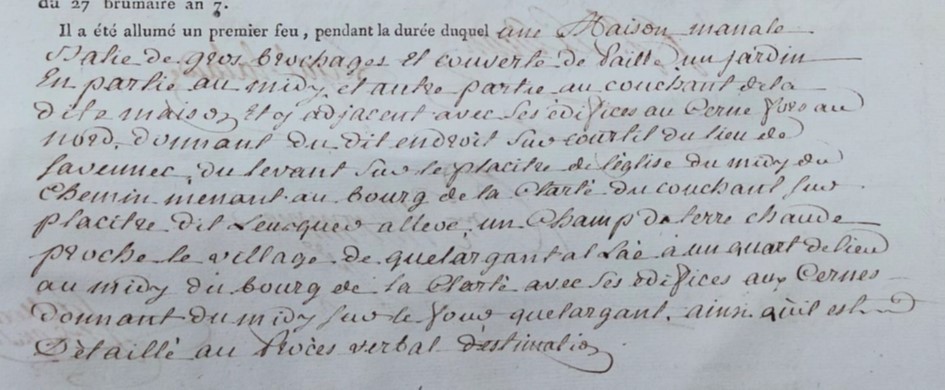 du 27 brumaire an 7.
Il a été allumé un premier feu, pendant la durée duquel une Maison manale
Batie de gros brochages Et couverte de Paille, un jardin
En partie au midy, et autre partie au couchant de la
dite maison, Et y adjacent avec ses édifices au Cerne fors au
nord, donnant du dit endroit sur courtil du lieu de
favennec, du levant sur le placitre de l'église du midy du
Chemin menant au bourg de la Clarté du couchant sur
placitre dit alleve, un Champ de terre chaude
proche le village de quelargant al Lae à un quart de lieu
au midy du bourg de la Clarté avec ses édifices aux Cernes
donnant du midy sur le four quelargant, ainsi qu'il est
Détaillé au Procès verbal d'estimation